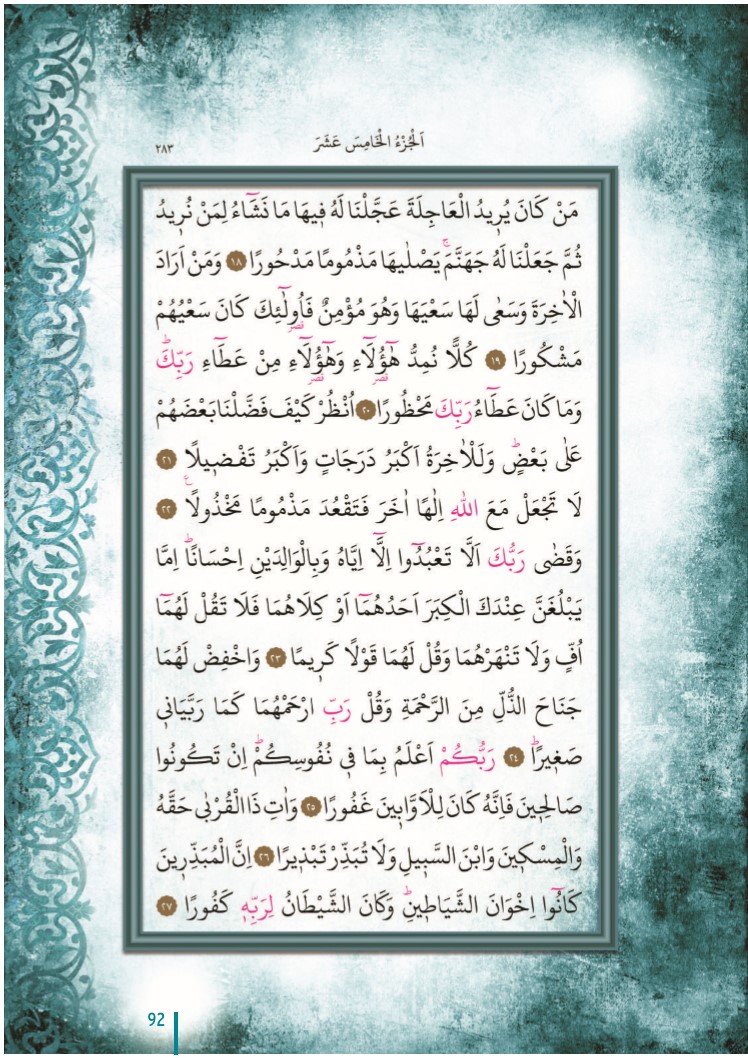 ٢٨٣
اَلْجُزْءُ الْخَامِسَ عَشَرَ
مَنْ كَانَ يُرٖيدُ الْعَاجِلَةَ عَجَّلْنَا لَهُ فٖيهَا مَا نَشَٓاءُ لِمَنْ نُرٖيدُ
ثُمَّ جَعَلْنَا لَهُ جَهَنَّمَۚ يَصْلٰيهَا مَذْمُومًا مَدْحُورًا ﴿١٨﴾ وَمَنْ اَرَادَ
الْاٰخِرَةَ وَسَعٰى لَهَا سَعْيَهَا وَهُوَ مُؤْمِنٌ فَاُو۬لٰٓئِكَ كَانَ سَعْيُهُمْ
مَشْكُورًا ﴿١٩﴾ كُلًّا نُمِدُّ هٰٓؤُ۬لَٓاءِ وَهٰٓؤُ۬لَٓاءِ مِنْ عَطَٓاءِ رَبِّكَؕ
وَمَا كَانَ عَطَٓاءُ رَبِّكَ مَحْظُورًا ﴿٢٠﴾ اُنْظُرْ كَيْفَ فَضَّلْنَا بَعْضَهُمْ
عَلٰى بَعْضٍؕ وَلَلْاٰخِرَةُ اَكْبَرُ دَرَجَاتٍ وَاَكْبَرُ تَفْضٖيلًا ﴿٢١﴾
لَا تَجْعَلْ مَعَ اللّٰهِ اِلٰهًا اٰخَرَ فَتَقْعُدَ مَذْمُومًا مَخْذُولًا ﴿٢٢﴾
وَقَضٰى رَبُّكَ اَلَّا تَعْبُدُٓوا اِلَّٓا اِيَّاهُ وَبِالْوَالِدَيْنِ اِحْسَانًاؕ اِمَّا
يَبْلُغَنَّ عِنْدَكَ الْكِبَرَ اَحَدُهُمَٓا اَوْ كِلَاهُمَا فَلَا تَقُلْ لَهُمَٓا
اُفٍّ وَلَا تَنْهَرْهُمَا وَقُلْ لَهُمَا قَوْلًا كَرٖيمًا ﴿٢٣﴾ وَاخْفِضْ لَهُمَا
جَنَاحَ الذُّلِّ مِنَ الرَّحْمَةِ وَقُلْ رَبِّ ارْحَمْهُمَا كَمَا رَبَّيَانٖى
صَغٖيرًاؕ ﴿٢٤﴾ رَبُّكُمْ اَعْلَمُ بِمَا فٖى نُفُوسِكُمْؕ اِنْ تَكُونُوا
صَالِحٖينَ فَاِنَّهُ كَانَ لِلْاَوَّابٖينَ غَفُورًا ﴿٢٥﴾ وَاٰتِ ذَا الْقُرْبٰى حَقَّهُ
وَالْمِسْكٖينَ وَابْنَ السَّبٖيلِ وَلَا تُبَذِّرْ تَبْذٖيرًا ﴿٢٦﴾ اِنَّ الْمُبَذِّرٖينَ
كَانُٓوا اِخْوَانَ الشَّيَاطٖينِؕ وَكَانَ الشَّيْطَانُ لِرَبِّهٖ كَفُورًا ﴿٢٧﴾
92